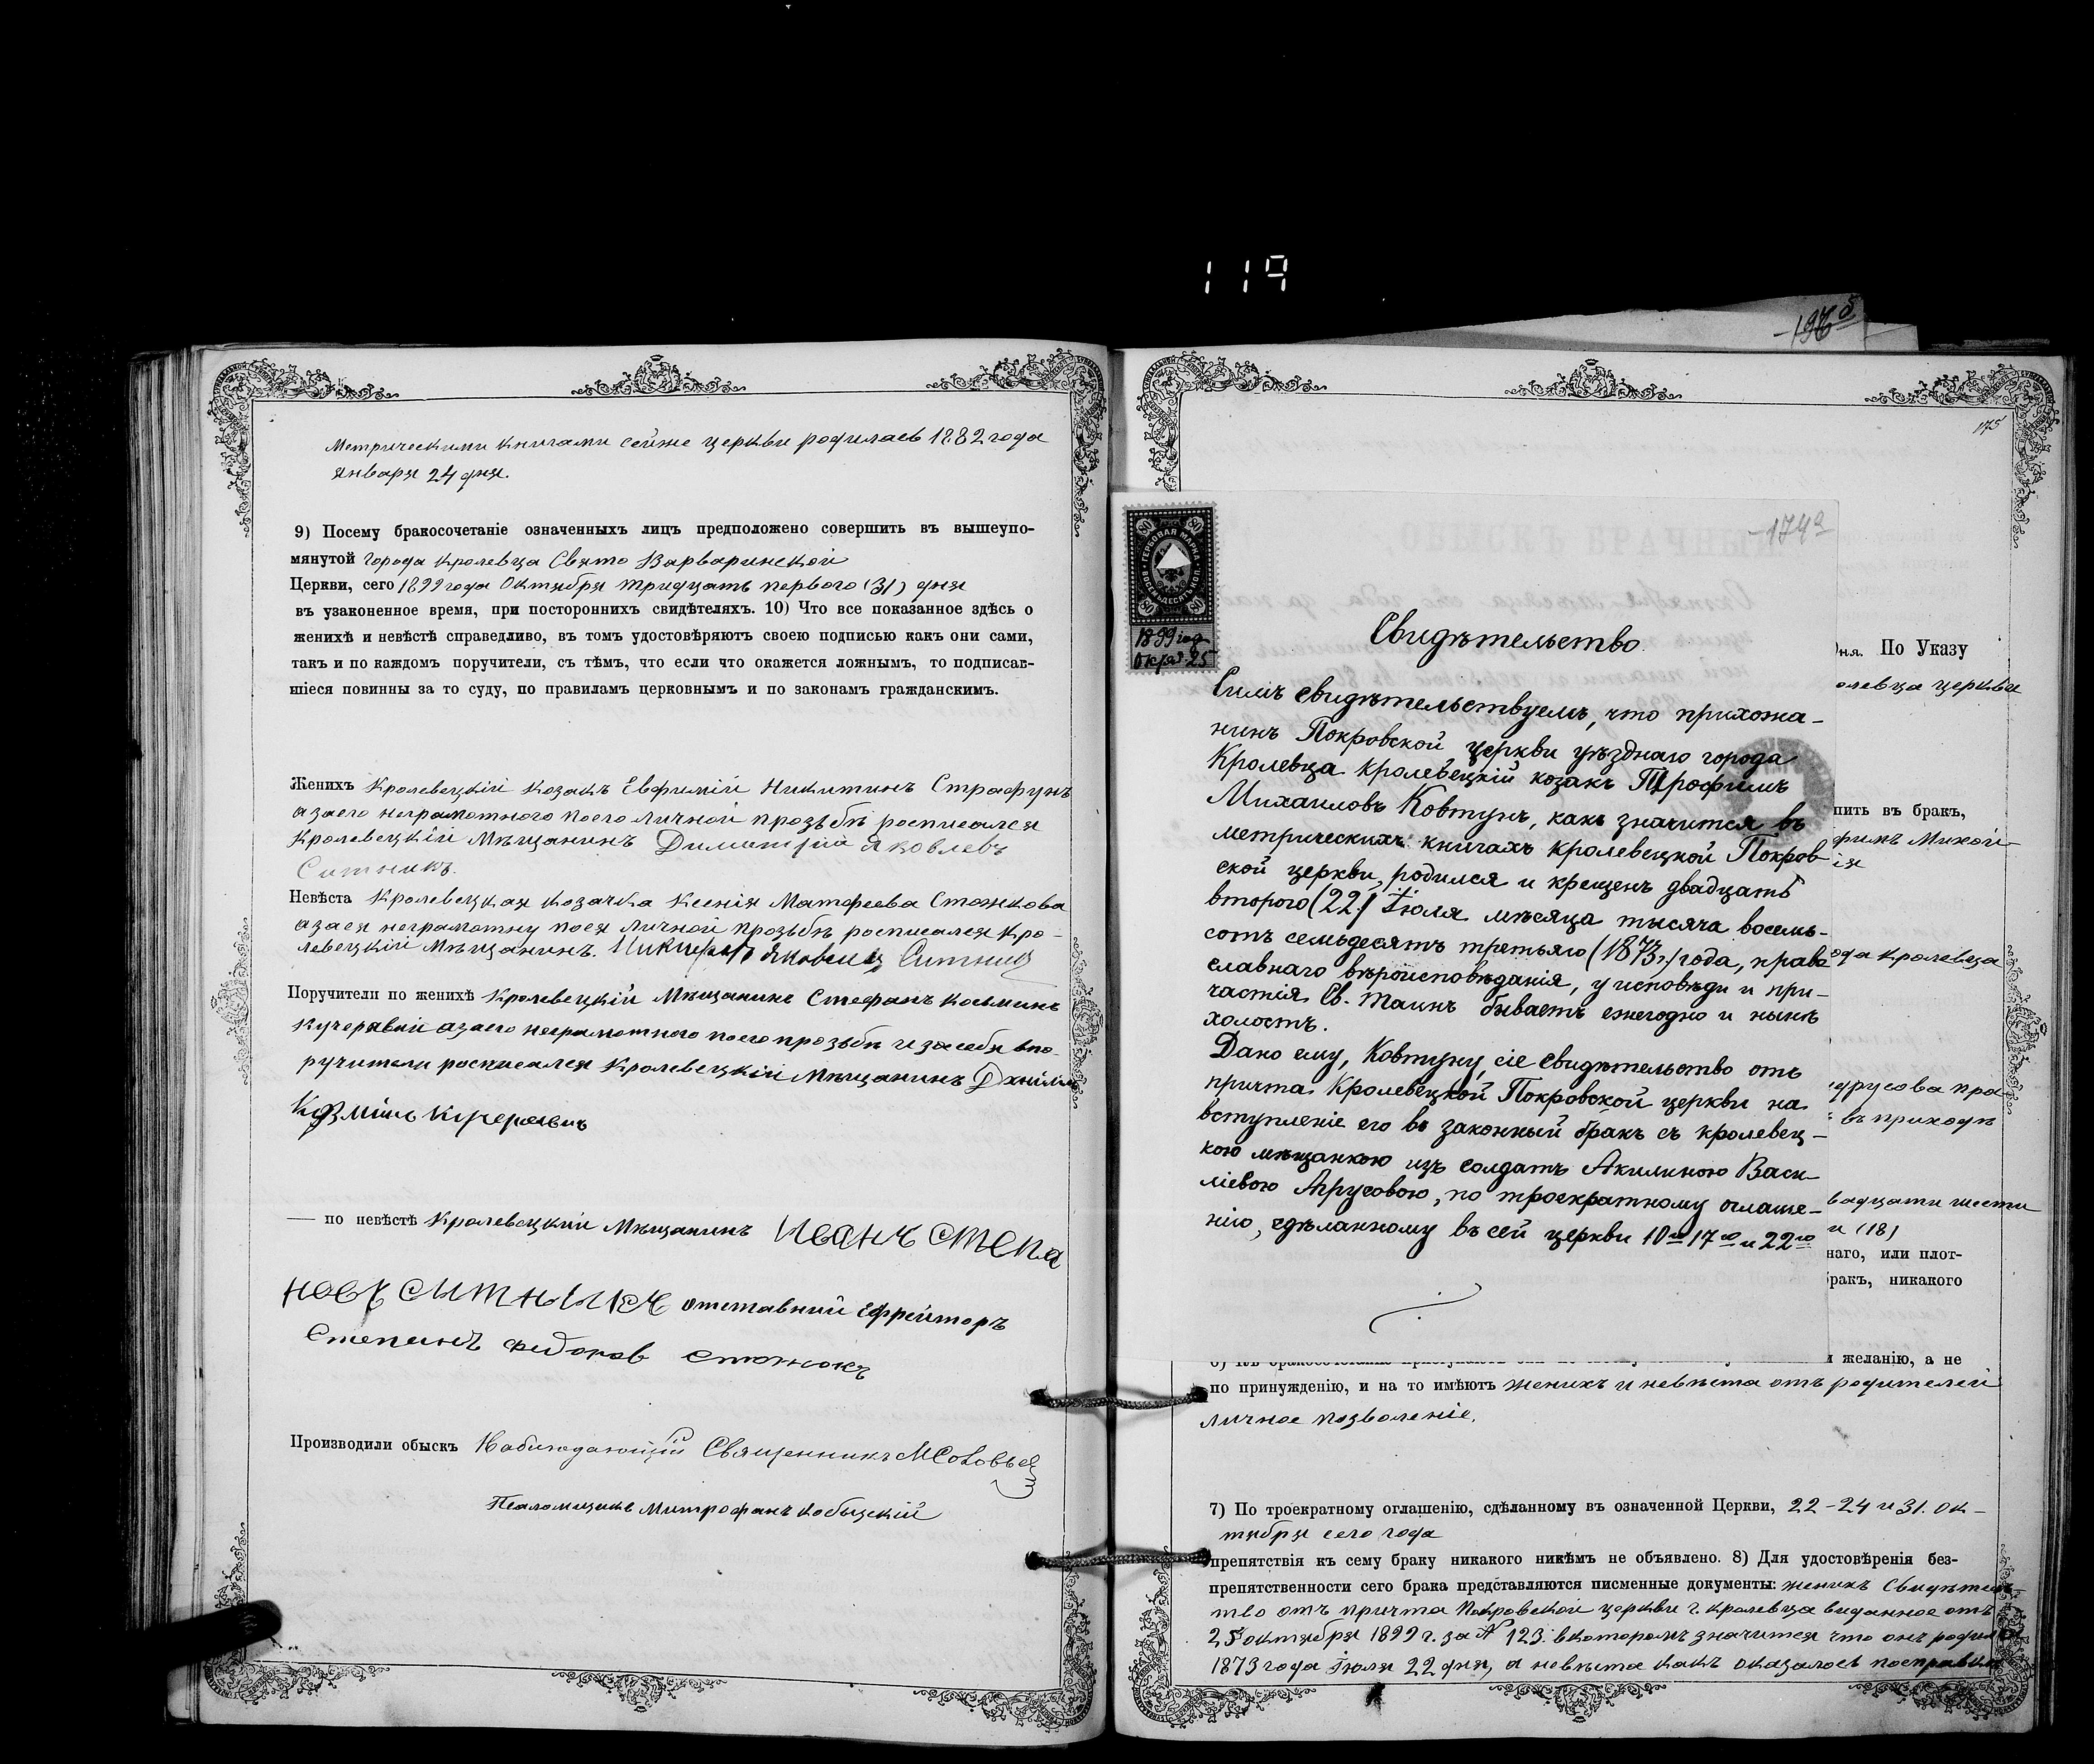 119
175
Метрическими книгами сейже церкви родилась 1882 года
января 24 дня.
9) Посему бракосочетаніе означенныхъ лицъ предположено совершить въ вышеупо-
мянутой города Кролевца Свято Варваринской
Церкви, сего 1899 года Октября тридцать перваго (31) дня
въ узаконенное время, при постороннихъ свидѣтеляхъ. 10) Что все показанное здѣсь о
женихѣ и невѣстѣ справедливо, въ томъ удостовѣряютъ своею подписью какъ они сами,
такъ и по каждомъ поручители, съ тѣмъ, что если что окажется ложнымъ, то подписав-
шіеся повинны за то суду, по правиламъ церковнымъ и по законамъ гражданскимъ.
Женихъ Кролевецкій Козакъ Евфимій Никитинъ Страфунъ
азаего неграмотного поего личной прозьбѣ росписался
Кролевецкій Мѣщанинъ Димитрій Яковлевъ
Ситникъ.
Невѣста Кролевецкая козачка Ксенія Матфеева Стожкова
азаея неграмотну поея личной прозьбѣ росписался Кро-
левецкій Мѣщанинъ. Яковлев Ситник
Поручители по женихѣ Кролевецкій Мѣщанинъ Стефанъ Косьминъ
Кучерявий азаего неграмотного поего прозьбѣ и засебя впо-
ручители росписался Кролевецкій Мѣщанинъ
— по невѣстѣ Кролевецкій Мѣщанинъ Иванъ Степа
новъ Ситникъ отставний Ефрейторъ
Стожокъ
Производили обыскъ Наблюдающій Священникъ М Соловьев
Псаломщикъ Митрофанъ Кобыцкій
-174а
ГЕРБОВАЯ МАРКА
80 80
ВОСЕМЬДЕСЯТЪ КОП.
80 80
1899 год
Октяб. 25
Свидѣтельство
Симъ свидѣтельствуемъ, что прихожа-
нинъ Покровской церкви уѣзднаго города
Кролевца кролевецкій козакъ Трофимъ
Михаиловъ Ковтунъ, какъ значится въ
метрическихъ книгахъ кролевецкой Покров
ской церкви, родился и крещенъ двадцать
второго (22) Іюля мѣсяца тысяча восемь-
сотъ семьдесятъ третьяго (1873 г.) года, право
славнаго вѣроисповѣданія, у исповѣди и при-
частія Св. Таинъ бываетъ ежегодно и нынѣ
холостъ.
Дано ему, Ковтуну, сіе свидѣтельство отъ
причта Кролевецкой Покровской церкви на
вступленіе его въ законный бракъ съ кролевец-
кою мѣщанкою изъ солдатъ Акилиною Васи
ліевою Андрусовою, по троекратному оглаше-
нію, сдѣланному въ сей церкви 10го 17го и 22го
дня. По Указу
олевца церкви
пить въ бракъ,
фимъ Михай-
ода Кролевца
друсова пра
въ приходѣ
вадцати шести
и (18)
наго, или плот-
ракъ, никакого
желанію, а не
по принужденію, и на то имѣютъ женихъ и невѣста отъ родителей
личное позволеніе.
7) По троекратному оглашенію, сдѣланному въ означенной Церкви, 22-24 и 31. Ок-
тября сего года
препятствія къ сему браку никакого никѣмъ не объявлено. 8) Для удостовѣренія без-
препятственности сего брака представляются писменные документы: женихъ Свидѣтель
тво отъ причта Покровской церкви г. Кролевца виданное отъ
25 октября 1899 г. за № 123. вкоторомъ значится что онъ родился
1873 года Іюля 22 дня, а невѣста какъ оказалось посправкѣ